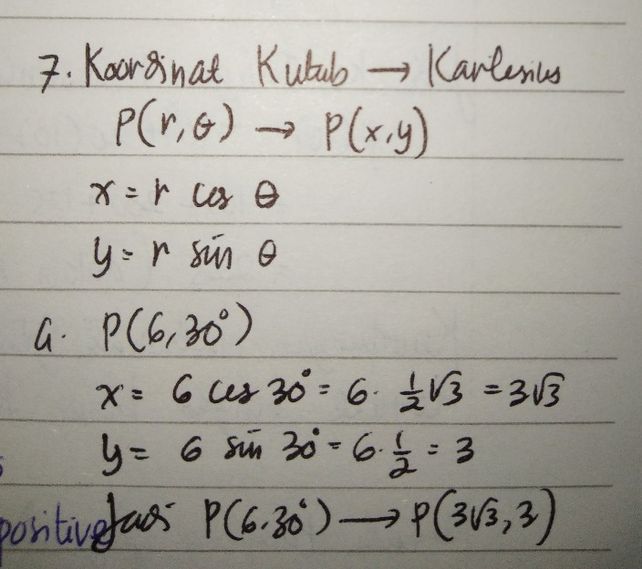 7. Koordinat Kutub → Kartesius
P(r, θ) → P(x, y)
x = r cos θ
y = r sin θ
a. P(6, 30°)
x = 6 cos 30° = 6 · 1/2 √3 = 3√3
y = 6 sin 30° = 6 · 1/2 = 3
positive Jadi P(6, 30°) → P(3√3, 3)